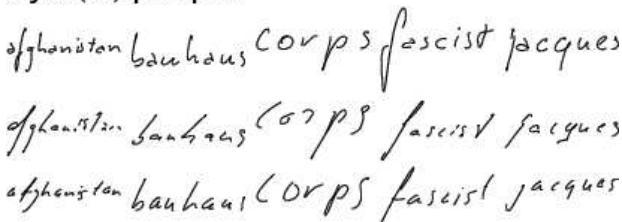 afghanistan bauhaus corps fascist jacques
afghanistan bauhaus corps fascist jacques
afghanistan bauhaus corps fascist jacques